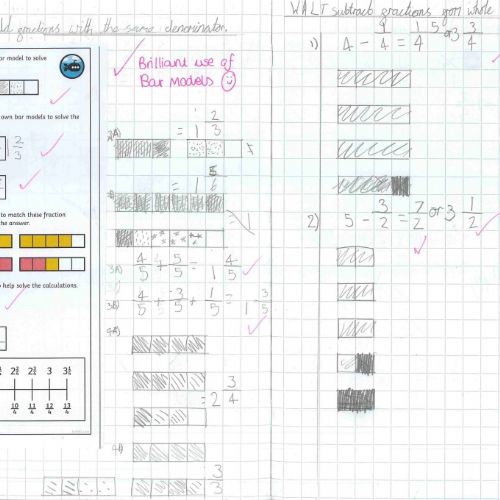 ld fractions with the same denominator.
ar model to solve
own bar models to solve the
2/3
to match these fraction
the answer.
o help solve the calculations.
2 2/4 2 3/4 3 3 1/4
10/4 11/4 12/4 13/4
Brilliant use of
Bar Models
2A)
= 1 2/3
= 1 5/6
3A) 4/5 + 5/5 = 1 4/5
3B) 4/5 + 3/5 + 1/5 = 1 3/5
4A)
= 2 3/4
WALT subtract fractions from whole
1) 4 - 1/4 = 15/4 or 3 3/4
2) 5 - 3/2 = 7/2 or 3 1/2